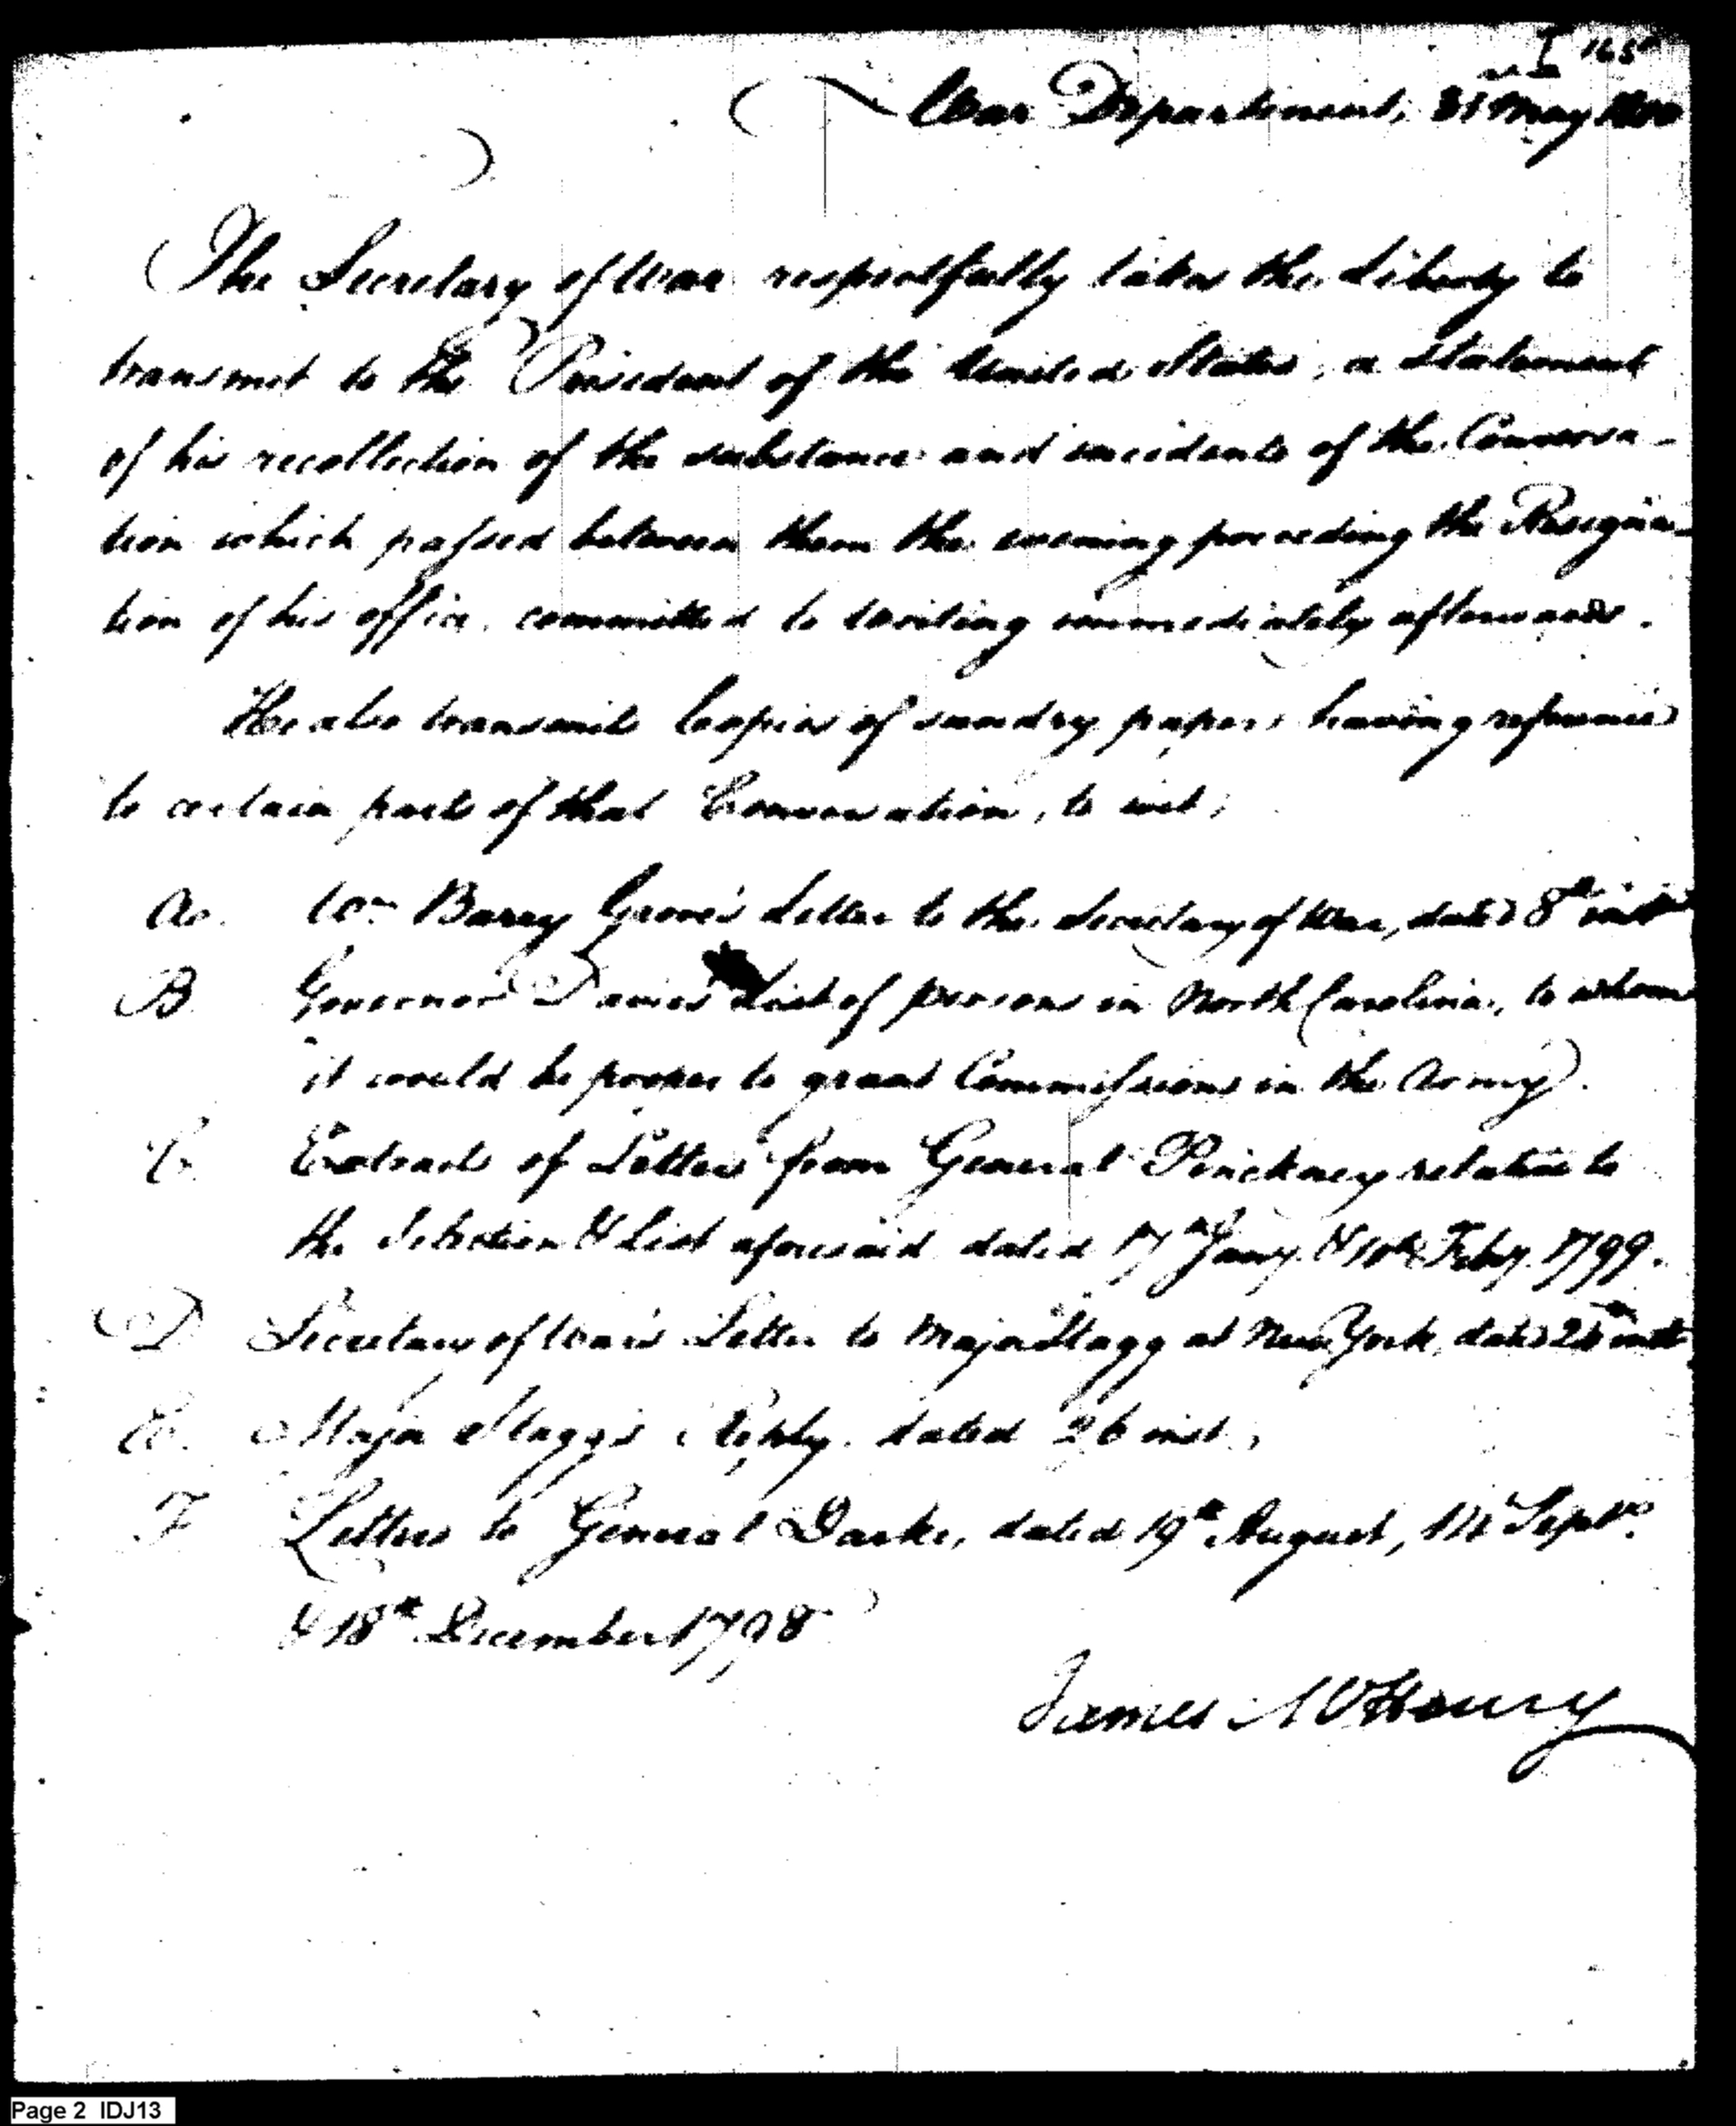 I 165
War Department, 31 May 1800
The Secretary of War respectfully takes the Liberty to
transmit to the President of the United States, a statement
of his recollection of the substance and incidents of the Conversa-
tion which passed between them the evening preceding the Resigna-
tion of his office, committed to writing immediately afterwards.
He also transmits Copies of sundry papers having reference
to certain parts of that Conversation, to wit;
A. Wm Barry Grove's Letter to the Secretary of War, dated 8th inst
B. Governor Davie's List of persons in North Carolina, to whom
it would be proper to grant Commissions in the Army.
C. Extracts of Letters from General Pinckney relative to
the Selection & List aforesaid dated 17th Jany. & 10th Feby. 1799.
D Secretary of War's Letter to Major Stagg at New York, dated inst
E. Major Stagg's Reply. dated 26 inst.
F Letters to General Darke, dated 19th August, Septr.
& 18th December 1798
James McHenry
Page 2 IDJ13